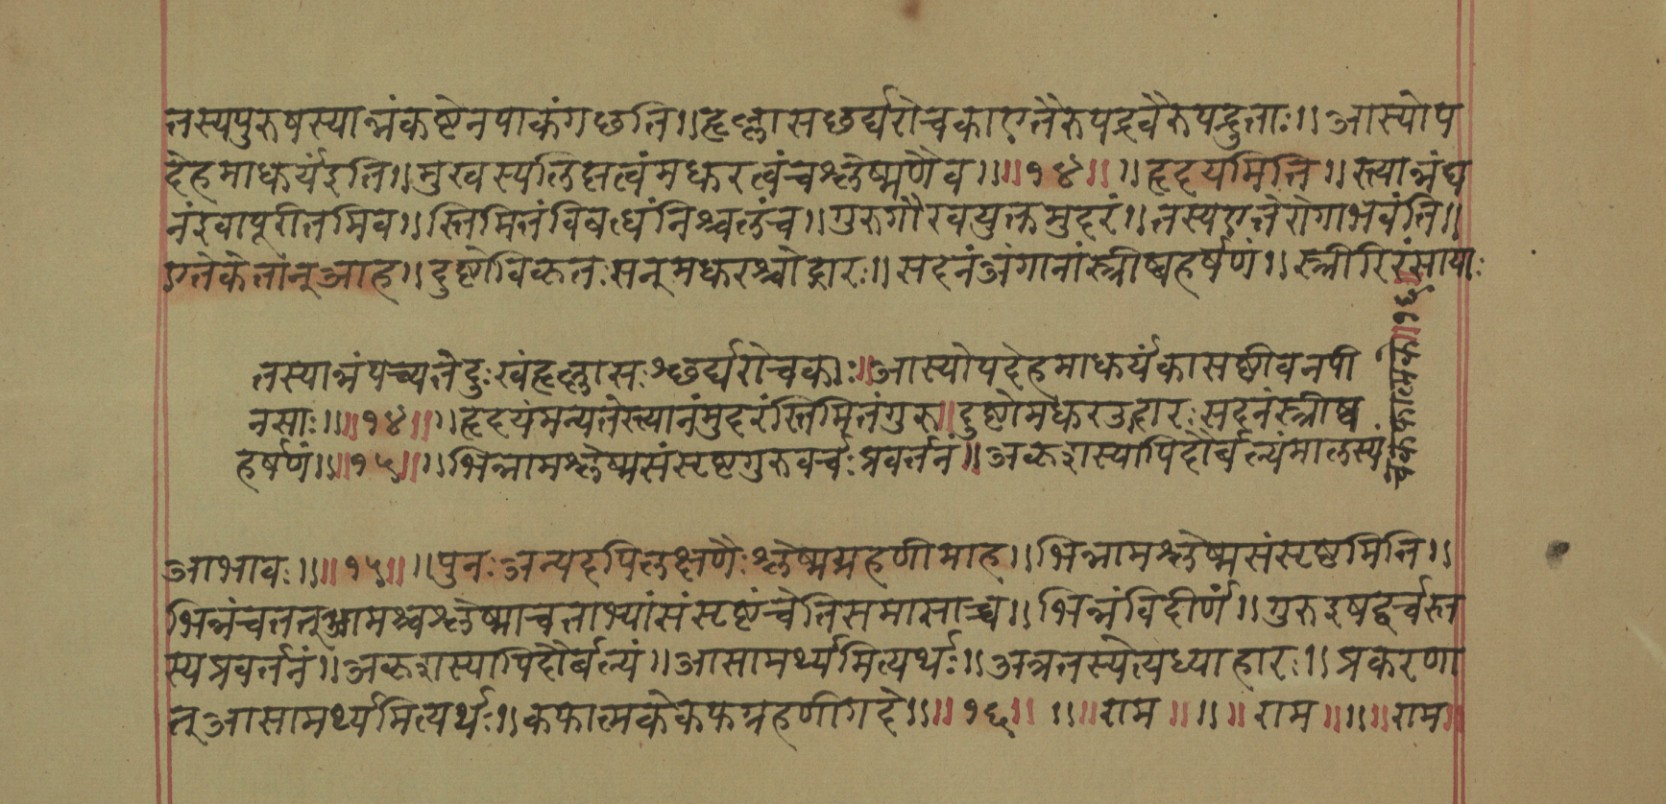 तस्यपुरुषस्यान्नंकष्टेनपाकंगछति॥हृल्लासछर्द्यरोचकाएतैरुपद्रवैरुपद्रुताः॥आस्योप
देहमाधुर्यंइति॥मुखस्यलिप्तत्वंमधुरत्वंचश्लेष्मणैव॥॥१४॥॥हृदयमिति॥स्त्यान्नंघ
नंइवापूरीतमिव॥स्तिमितंविबधंनिश्चलंच॥गुरुगौरवयुक्तमुदरं॥तस्यएतेरोगाभवंति॥
एतेकेतान्आह॥दुष्टोविकृतःसन्मधुरश्चोद्गारः॥सदनंअंगानांस्त्रीष्वहर्षणं॥स्त्रीरिरंसायाः
तस्यान्नंपच्यतेदुःखंहृल्लासःश्छर्द्यरोचकाः॥आस्योपदेहमाधुर्यंकासष्ठीवनपी
नसाः॥॥१४॥॥हृदयंमन्यतेस्त्यानंमुदरंस्तिमितंगुरु॥दुष्टोमधुरउद्गारःसदनंस्त्रीष्व
हर्षणं॥॥१५॥॥भिन्नामश्लेष्मसंसृष्टगुरुवर्चःप्रवर्तनं॥अकृशस्यापिदौर्बल्यंमालस्यं
॥१६॥
आभावः॥॥१५॥॥पुनःअन्यदपिलक्षणैःश्लेष्मग्रहणीमाह॥भिन्नामश्लेष्मसंसृष्टमिति॥
भिन्नंचतत्आमश्चश्लेष्माचताभ्यांसंसृष्टंचेतिसमासाच्च॥भिन्नंविदीर्णं॥गुरुइषद्वर्चस्त
स्यप्रवर्तनं॥अकृशस्यापिदौर्बल्यं॥आसामर्थ्यमित्यर्थः॥अत्रतस्येत्यध्याहारः॥प्रकरणा
त्आसामर्थ्यमित्यर्थः॥कफात्मकेकफग्रहणीगदे॥॥१६॥॥॥राम॥॥॥राम॥॥॥राम॥